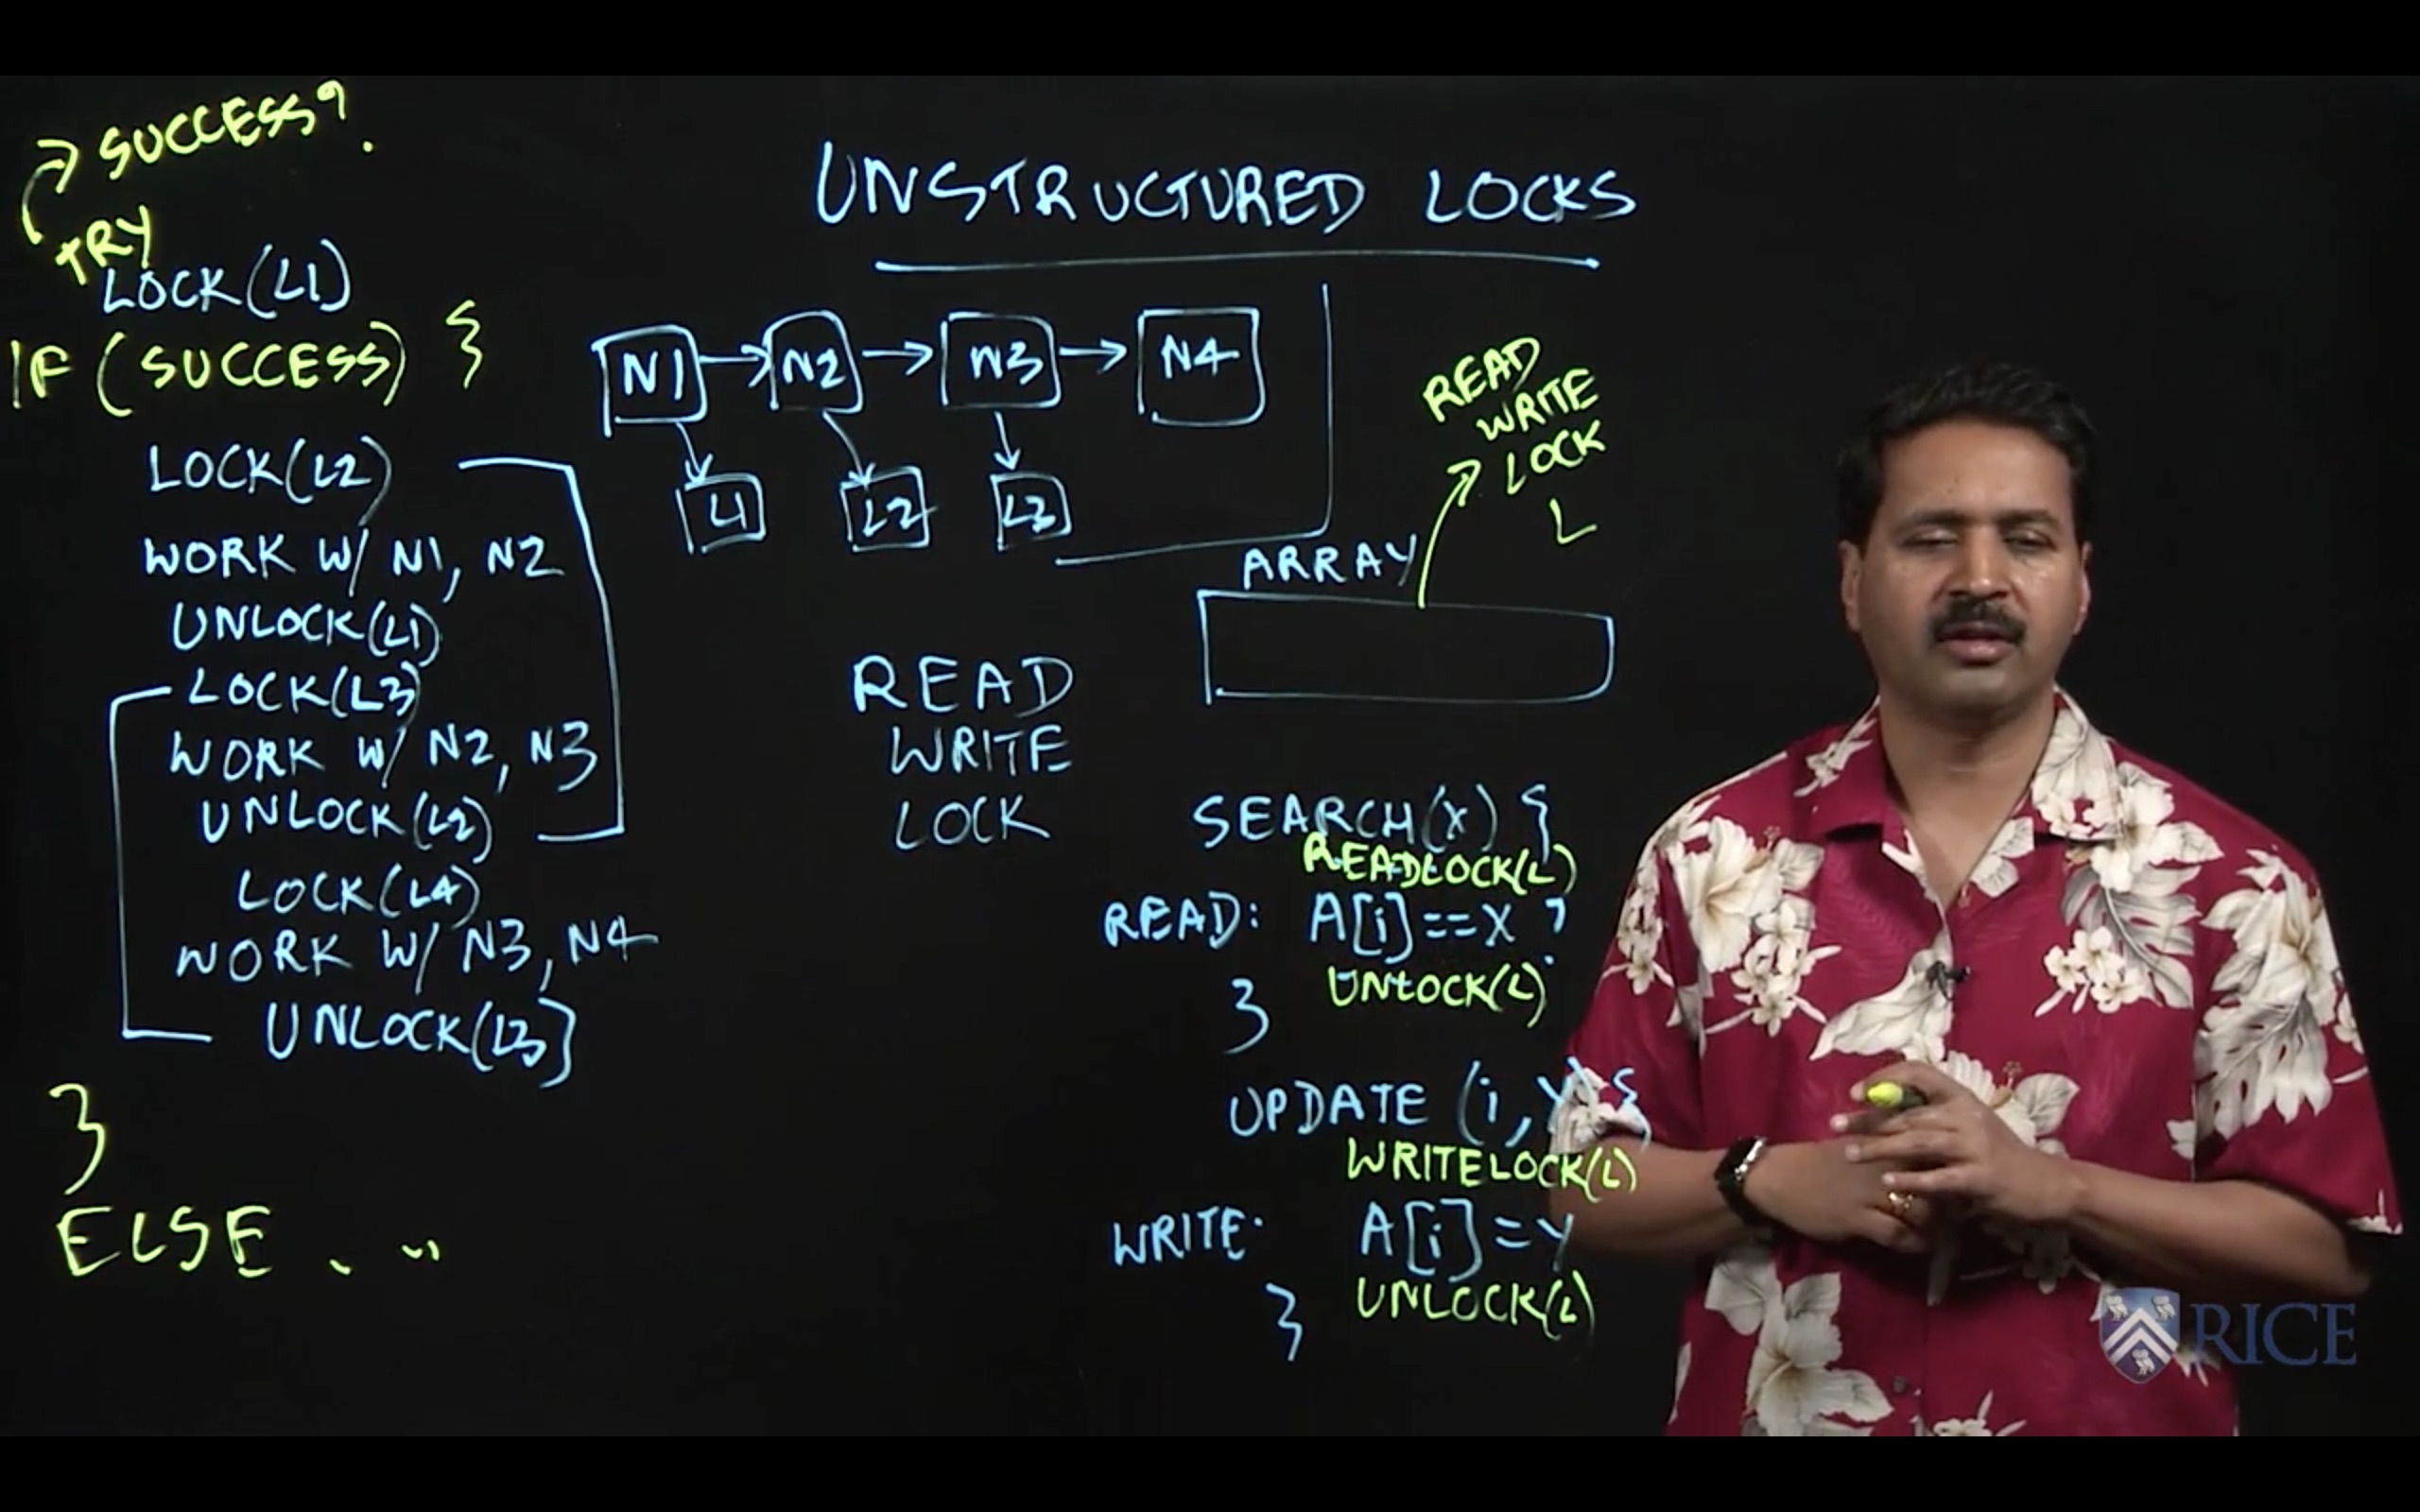 SUCCESS?
TRY
LOCK(L1)
IF (SUCCESS) {
LOCK(L2)
WORK W/ N1, N2
UNLOCK(L1)
LOCK(L3)
WORK W/ N2, N3
UNLOCK(L2)
LOCK(L4)
WORK W/ N3, N4
UNLOCK(L3)
}
ELSE ...
UNSTRUCTURED LOCKS
N1 N2 N3 N4
L1 L2 L3
READ
WRITE
LOCK
READ
WRITE
LOCK
L
ARRAY
SEARCH(X) {
READLOCK(L)
READ: A[i]==X ?
UNLOCK(L)
}
UPDATE (i, Y) {
WRITELOCK(L)
WRITE: A[i]=Y
UNLOCK(L)
}
RICE